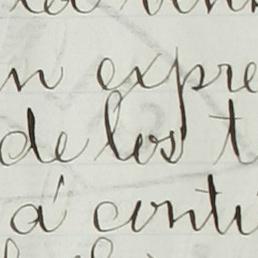 n expre
de los t
á conti